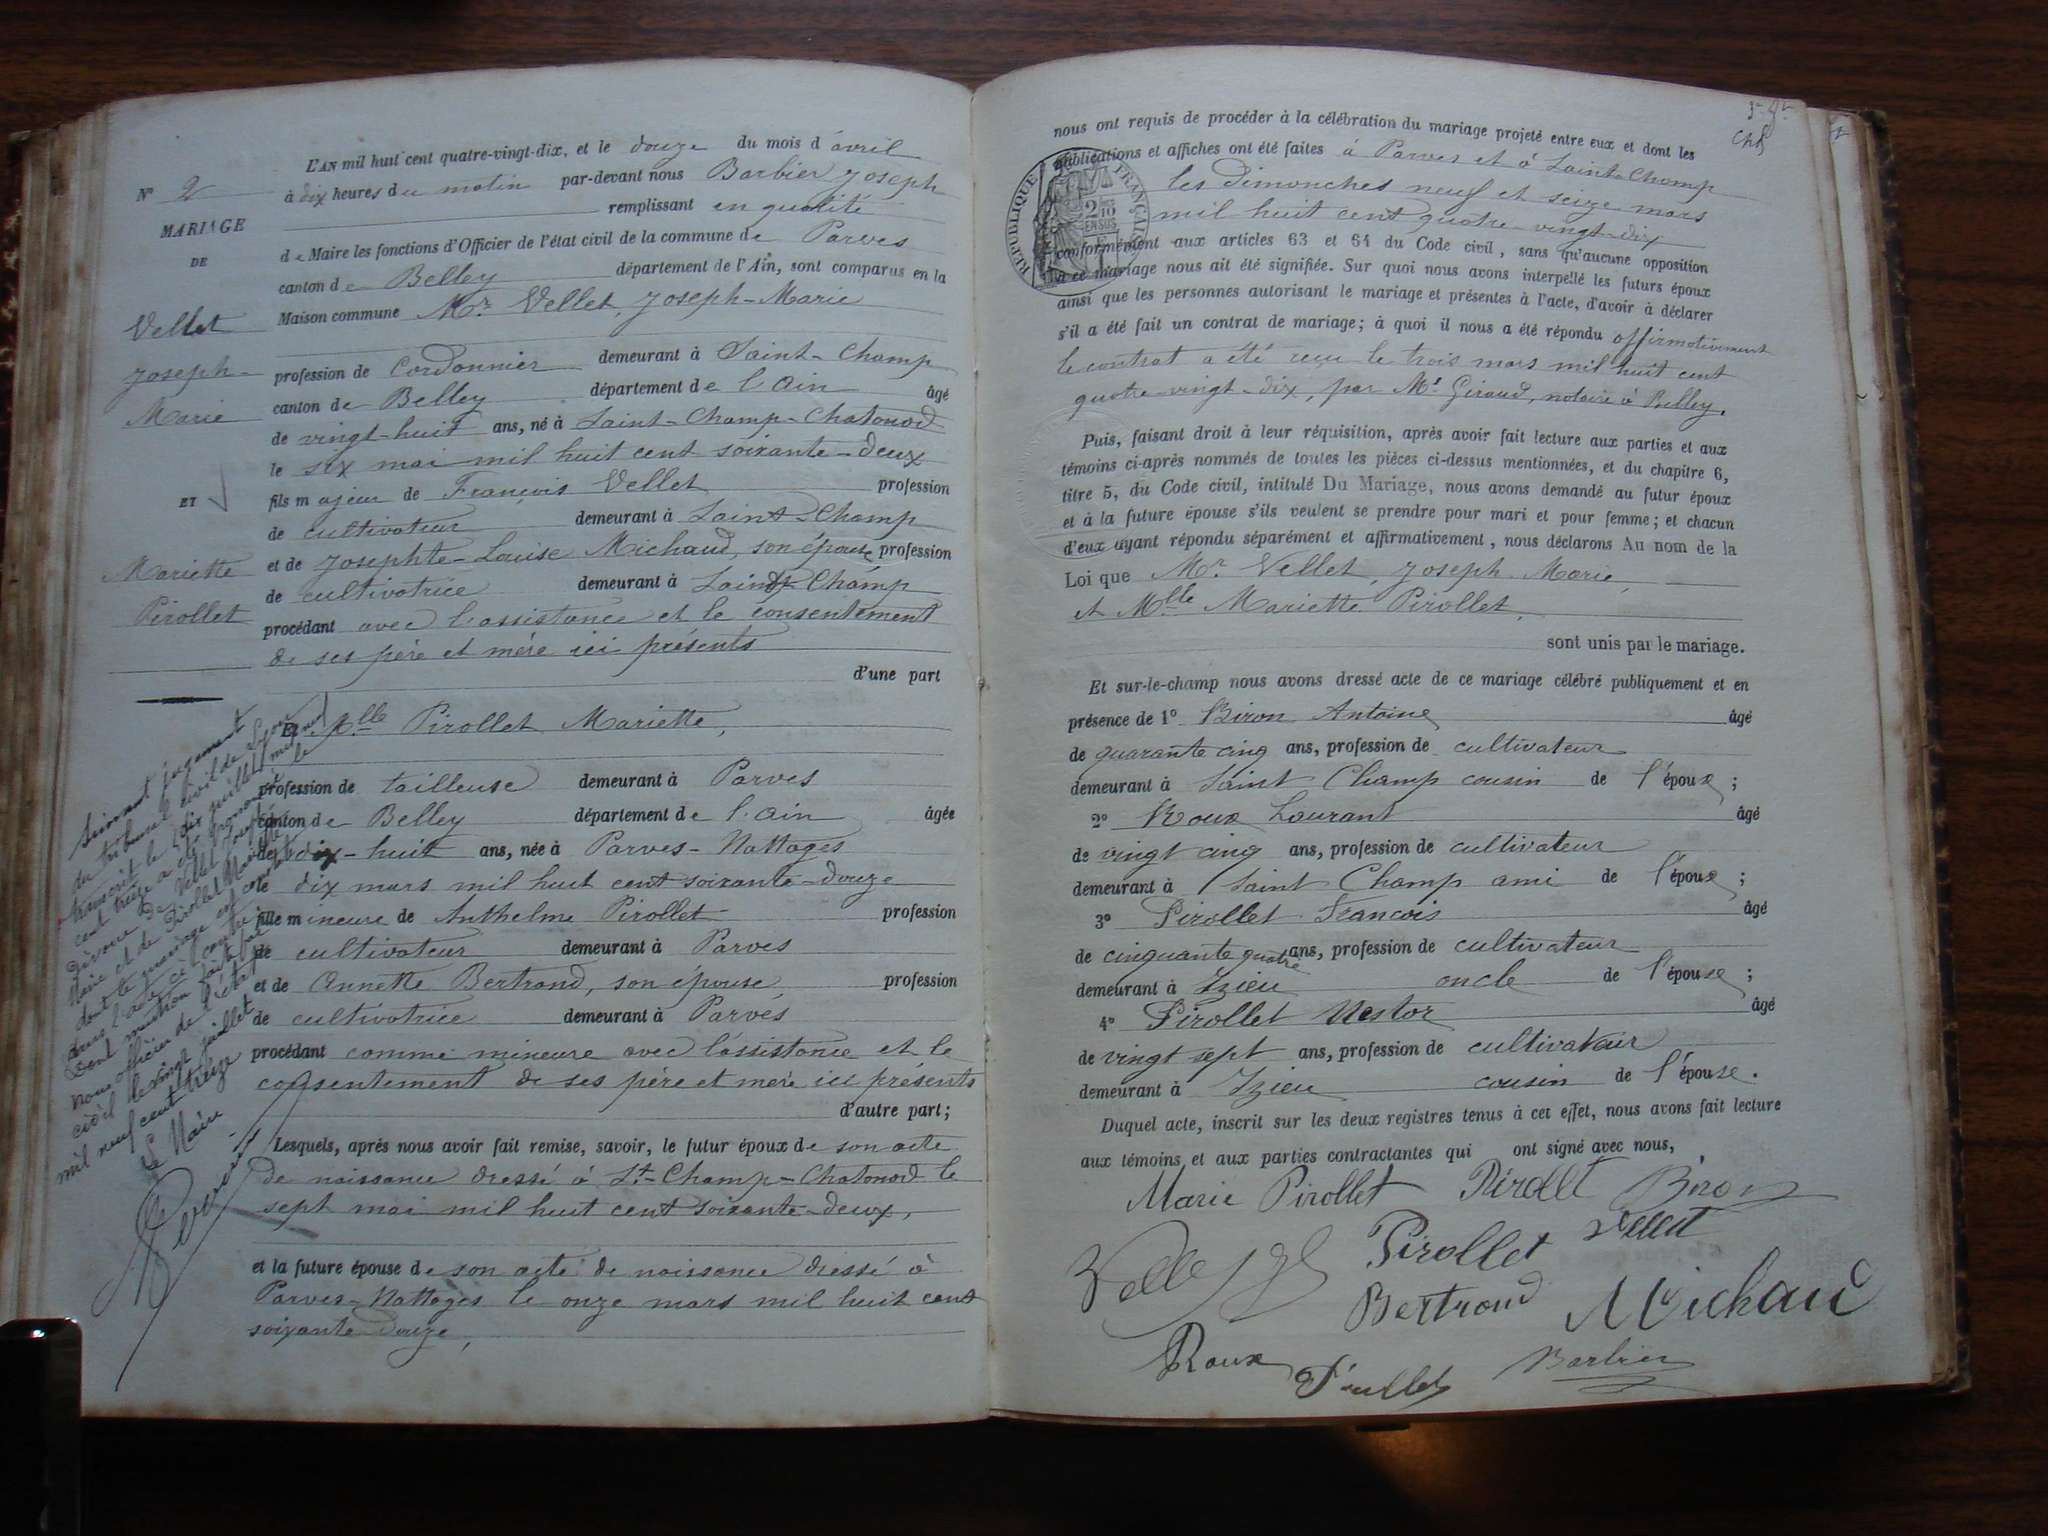 N° 2
MARIAGE
DE
Vellet
Joseph-
Marie
ET
Mariette
Pirollet
L'AN mil huit cent quatre-vingt-dix, et le douze du mois d'avril
à dix heures du matin par-devant nous Barbier Joseph
remplissant en qualité
de Maire les fonctions d'Officier de l'état civil de la commune de Parves
canton de Belley département de l'Ain, sont comparus en la
Maison commune Mr Vellet, Joseph-Marie
profession de Cordonnier demeurant à Saint-Champ
canton de Belley département de l'Ain âgé
de vingt-huit ans, né à Saint-Champ-Chatonod
le six mai mil huit cent soixante-deux
fils majeur de François Vellet profession
de cultivateur demeurant à Saint-Champ
et de Josephte-Louise Michaud, son épouse profession
de cultivatrice demeurant à Saint-Champ
procédant avec l'assistance et le consentement
de ses père et mère ici présents
d'une part
Et Mlle Pirollet Mariette,
profession de tailleuse demeurant à Parves
canton de Belley département de l'Ain âgée
de dix-huit ans, née à Parves-Nattages
le dix mars mil huit cent soixante-douze
fille mineure de Anthelme Pirollet profession
de cultivateur demeurant à Parves
et de Annette Bertrand, son épouse profession
de cultivatrice demeurant à Parves
procédant comme mineure avec l'assistance et le
consentement de ses père et mère ici présents
d'autre part;
Lesquels, après nous avoir fait remise, savoir, le futur époux de son acte
de naissance dressé à St-Champ-Chatonod le
sept mai mil huit cent soixante-deux,
et la future épouse de son acte de naissance dressé à
Parves-Nattages le onze mars mil huit cent
soixante-douze,
Suivant jugement
du tribunal civil de Lyon
transcrit le dix juillet mil neuf
cent treize a été prononcé le
divorce de Vellet Joseph
Marie et de Pirollet Mariette
dont le mariage est constaté
dans l'acte ci-contre
mention faite par
nous officier de l'état
civil le vingt juillet
mil neuf cent treize
Le Maire
nous ont requis de procéder à la célébration du mariage projeté entre eux et dont les
publications et affiches ont été faites à Parves et à Saint-Champ
les dimanches neuf et seize mars
mil huit cent quatre-vingt-dix
conformément aux articles 63 et 64 du Code civil, sans qu'aucune opposition
à ce mariage nous ait été signifiée. Sur quoi nous avons interpellé les futurs époux
ainsi que les personnes autorisant le mariage et présentes à l'acte, d'avoir à déclarer
s'il a été fait un contrat de mariage; à quoi il nous a été répondu affirmativement
le contrat a été reçu le trois mars mil huit cent
quatre-vingt-dix, par Me Giraud, notaire à Belley.
RÉPUBLIQUE FRANÇAISE
2/10 EN SUS
Puis, faisant droit à leur réquisition, après avoir fait lecture aux parties et aux
témoins ci-après nommés de toutes les pièces ci-dessus mentionnées, et du chapitre 6,
titre 5, du Code civil, intitulé Du Mariage, nous avons demandé au futur époux
et à la future épouse s'ils veulent se prendre pour mari et pour femme; et chacun
d'eux ayant répondu séparément et affirmativement, nous déclarons Au nom de la
Loi que Mr Vellet, Joseph Marie,
et Mlle Mariette Pirollet,
sont unis par le mariage.
Et sur-le-champ nous avons dressé acte de ce mariage célébré publiquement et en
présence de 1° Biron Antoine âgé
de quarante cinq ans, profession de cultivateur
demeurant à Saint Champ cousin de l'époux;
2° Roux Laurant âgé
de vingt cinq ans, profession de cultivateur
demeurant à Saint Champ ami de l'époux;
3° Pirollet Francois âgé
de cinquante quatre ans, profession de cultivateur
demeurant à Izieu oncle de l'épouse;
4° Pirollet Nestor âgé
de vingt sept ans, profession de cultivateur
demeurant à Izieu cousin de l'épouse.
Duquel acte, inscrit sur les deux registres tenus à cet effet, nous avons fait lecture
aux témoins et aux parties contractantes qui ont signé avec nous,
Marie Pirollet Pirollet Biron
Vellet Pirollet Vellet
Bertrand Michaud
Roux Pirollet Barbier